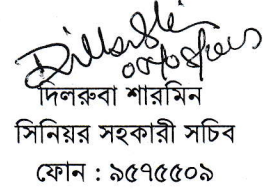 দিলরুবা শারমিন
সিনিয়র সহকারী সচিব
ফোন : ৯৫৭৫৫০৯